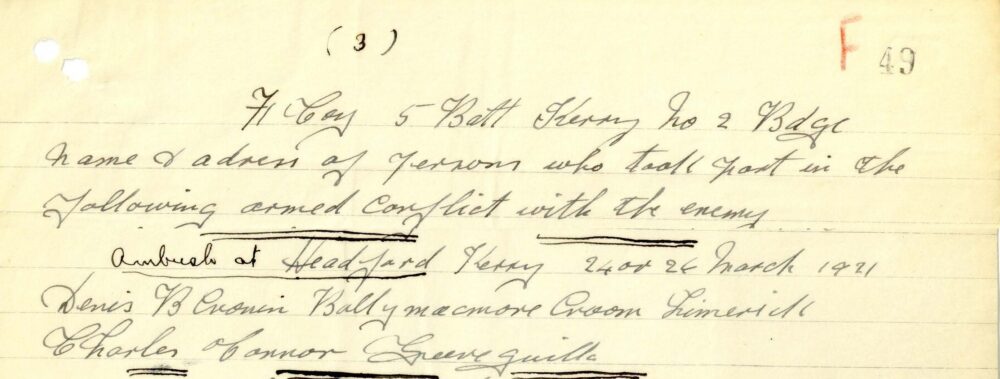 ( 3 )
F 49
H Coy 5 Batt Kerry No 2 Bdge
Name & adress of persons who took part in the
following armed conflict with the enemy
Ambush at Headford Kerry 24 or 26 March 1921
Denis B Cronin Ballymacmore Croom Limerick
Charles O'Connor Gneeveguilla